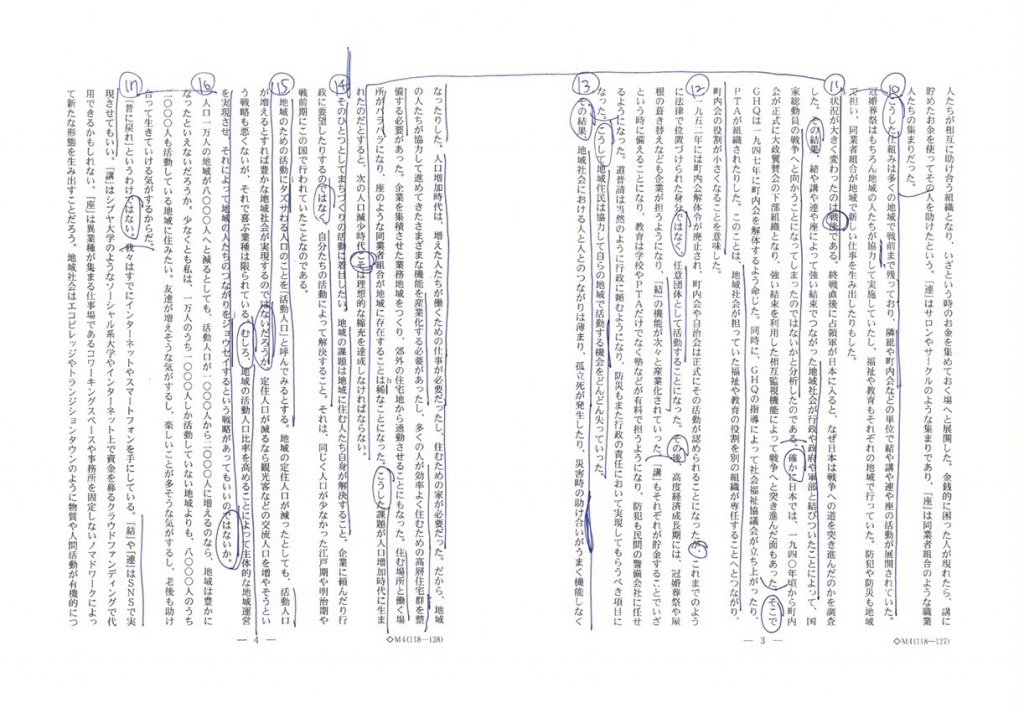 人たちが相互に助け合う組織となり、いざという時のお金を集めておく場へと展開した。金銭的に困った人が現れたら、講に
貯めたお金を使ってその人を助けたという。「連」はサロンやサークルのような集まりであり、「座」は同業者組合のような職業
人たちの集まりだった。
⑩
こうした仕組みは多くの地域で戦前まで残っており、隣組や町内会などの単位で結や講や連や座の活動が展開されていた。
冠婚葬祭はもちろん地域の人たちが協力して実施していたし、福祉や教育もそれぞれの地域で行っていた。防犯や防災も地域
で担い、同業者組合が地域で新しい仕事を生み出したりもした。
⑪
状況が大きく変わったのは戦後である。終戦直後に占領軍が日本に入ると、なぜ日本は戦争への道を突き進んだのかを調査
した。その結果、結や講や連や座によって強い結束でつながった地域社会が行政や政府や軍部と結びついたことによって、国
家総動員の戦争へと向かうことになってしまったのではないかと分析したのである。確かに日本では、一九四〇年頃から町内
会が正式に大政翼賛会の下部組織となり、強い結束を利用した相互監視機能によって戦争へと突き進んだ面もあった。そこで
GHQは一九四七年に町内会を解体するよう命じた。同時に、GHQの指導によって社会福祉協議会が立ち上がったり、
PTAが組織されたりした。このことは、地域社会が担っていた福祉や教育の役割を別の組織が専任することへとつながり、
町内会の役割が小さくなることを意味した。
⑫
一九五二年には町内会解体令が廃止され、町内会や自治会は正式にその活動が認められることになったが、これまでのよう
に法律で位置づけられた身分ではなく、任意団体として活動することになった。その後、高度経済成長期には、冠婚葬祭や屋
根の葺き替えなども企業が担うようになり、「結」の機能が次々と産業化されていった。「講」もそれぞれが貯金することでいざ
という時に備えることになり、教育は学校やPTAだけでなく塾などが有料で担うようになり、防犯も民間の警備会社に任せ
るようになった。道普請は当然のように行政に頼むようになり、防災もまた行政の責任において実現してもらうべき項目に
なった。こうして地域住民は協力して自らの地域で活動する機会をどんどん失っていった。
⑬
その結果、地域社会における人と人とのつながりは薄まり、孤立死が発生したり、災害時の助け合いがうまく機能しなく
— 3 —
◇M4(118—127)
なったりした。人口増加時代は、増えた人たちが働くための仕事が必要だったし、住むための家が必要だった。だから、地域
の人たちが協力して進めてきたさまざまな機能を産業化する必要があったし、多くの人が効率よく住むための高層住宅群を整
備する必要があった。企業を集積させた業務地域をつくり、郊外の住宅地から通勤させることにもなった。住む場所と働く場
所がバラバラになり、座のような同業者組合が地域に存在することは稀なことになった。こうした課題が人口増加時代に生ま
れたのだとすると、次の人口減少時代こそは理想的な縮充を達成しなければならない。
⑭
そのひとつとしてまちづくりの活動に着目したい。地域の課題は地域に住む人たち自身が解決すること、企業に頼んだり行
政に要望したりするのではなく、自分たちの活動によって解決すること、それは、同じく人口が少なかった江戸期や明治期や
戦前期にこの国で行われていたことなのである。
⑮
地域のための活動にタズサわる人口のことを「活動人口」と呼んでみるとする。地域の定住人口が減ったとしても、活動人口
が増えるとすれば豊かな地域社会が実現するのではないだろうか。定住人口が減るなら観光客などの交流人口を増やそうとい
う戦略も悪くないが、それで喜ぶ業種は限られている。むしろ、地域の活動人口比率を高めることによって主体的な地域運営
を実現させ、それによって地域の人たちのつながりをジョウセイするという戦略があってもいいのではないか。
⑯
人口一万人の地域が八〇〇〇人へと減るとしても、活動人口が一〇〇〇人から二〇〇〇人に増えるのなら、地域は豊かに
なったといえないだろうか。少なくとも私は、一万人のうち一〇〇〇人しか活動していない地域よりも、八〇〇〇人のうち
二〇〇〇人も活動している地域に住みたい。友達が増えそうな気がするし、楽しいことが多そうな気がするし、老後も助け
合って生きていける気がするからだ。
⑰
「昔に戻れ」というわけではない。我々はすでにインターネットやスマートフォンを手にしている。「結」や「連」はSNSで実
現させてもいい。「講」はシブヤ大学のようなソーシャル系大学やインターネット上で資金を募るクラウドファンディングで代
用できるかもしれない。「座」は異業種が集まる仕事場であるコワーキングスペースや事務所を固定しないノマドワークによっ
て新たな形態を生み出すことだろう。地域社会はエコビレッジやトランジションタウンのように物質や人間活動が有機的につ
— 4 —
◇M4(118—128)